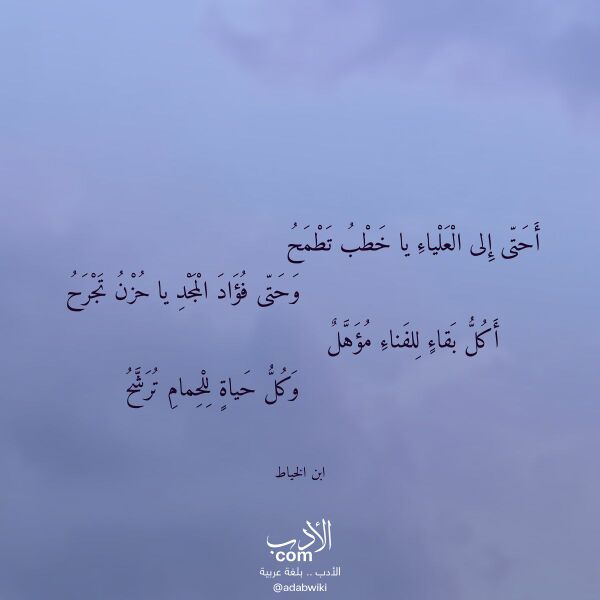 أَحَتّى إِلى الْعَلْياءِ يا خَطْبُ تَطْمَحُ
وَحَتّى فُؤَادَ الْمَجْدِ يا حُزْنُ تَجْرَحُ
أَكُلُّ بَقاءٍ لِلفَناءِ مُؤَهَّلٌ
وَكُلُّ حَياةٍ لِلْحِمامِ تُرَشَّحُ
ابن الخياط
الأدب
com
الأدب .. بلغة عربية
@adabwiki